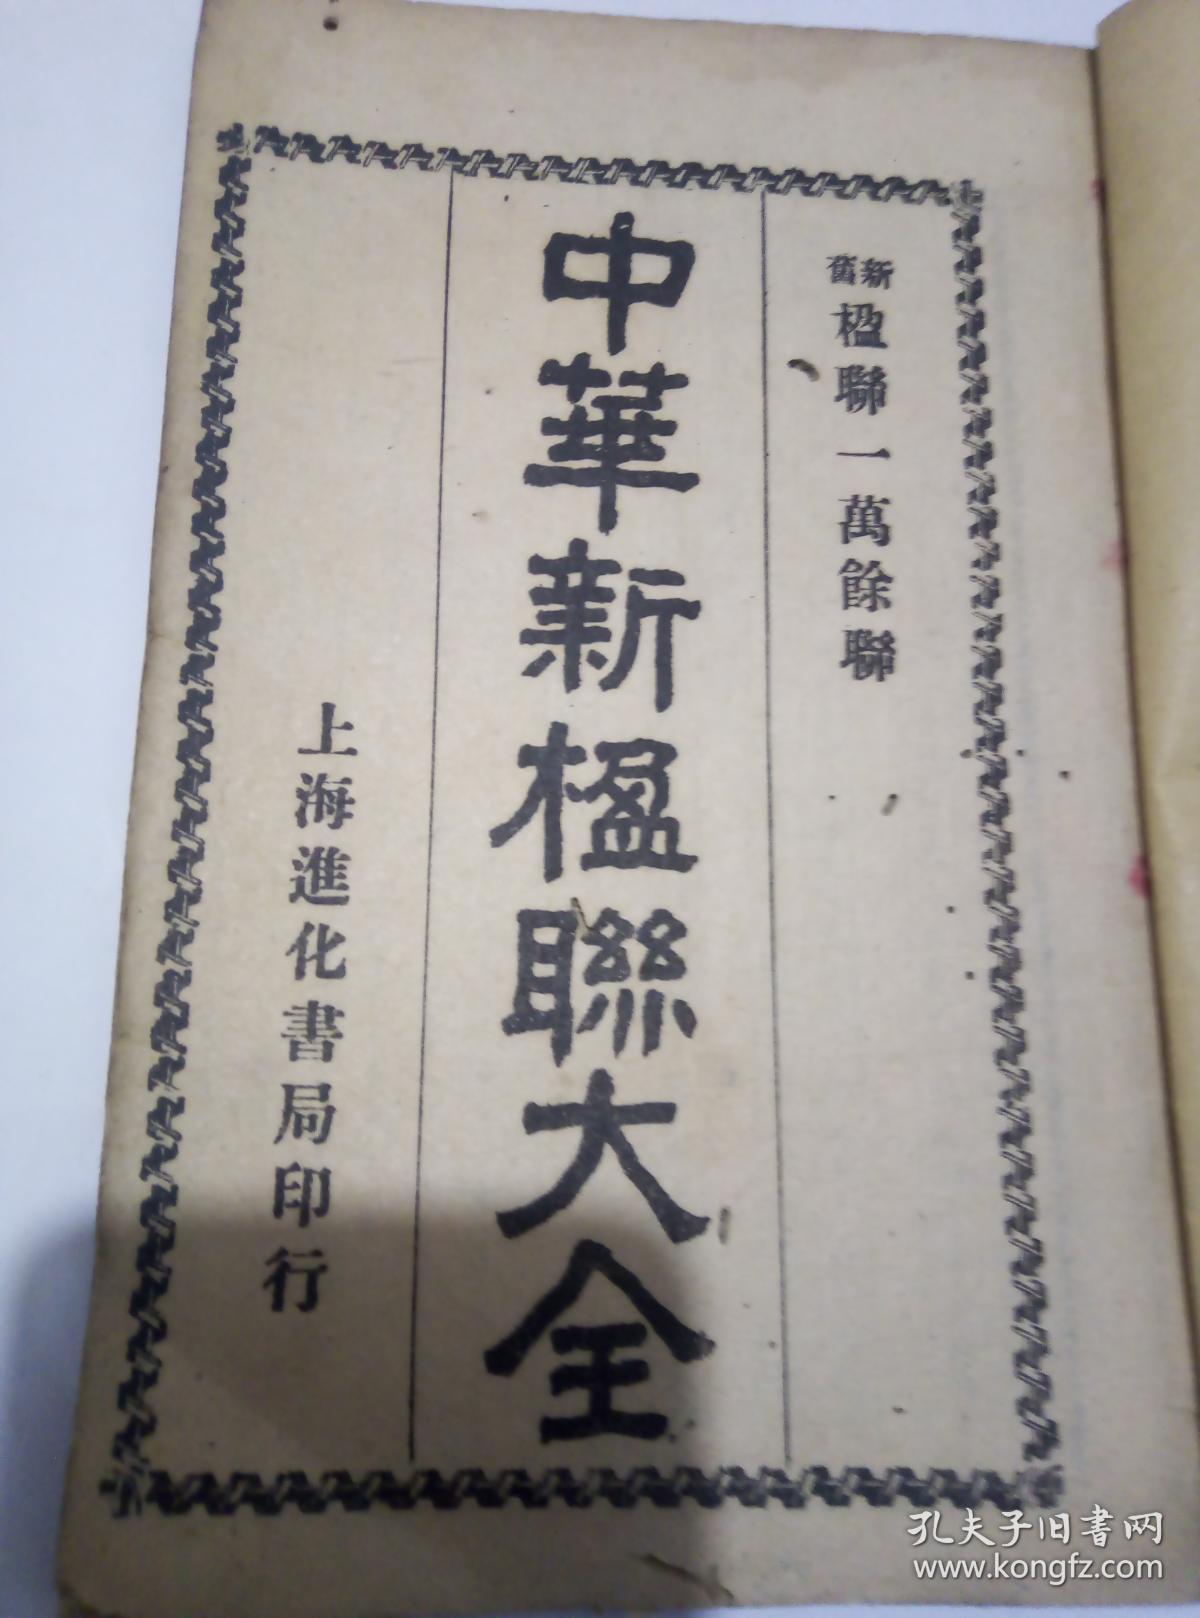 新舊楹聯一萬餘聯
中華新楹聯大全
上海進化書局印行
孔夫子旧书网
www.kongfz.com